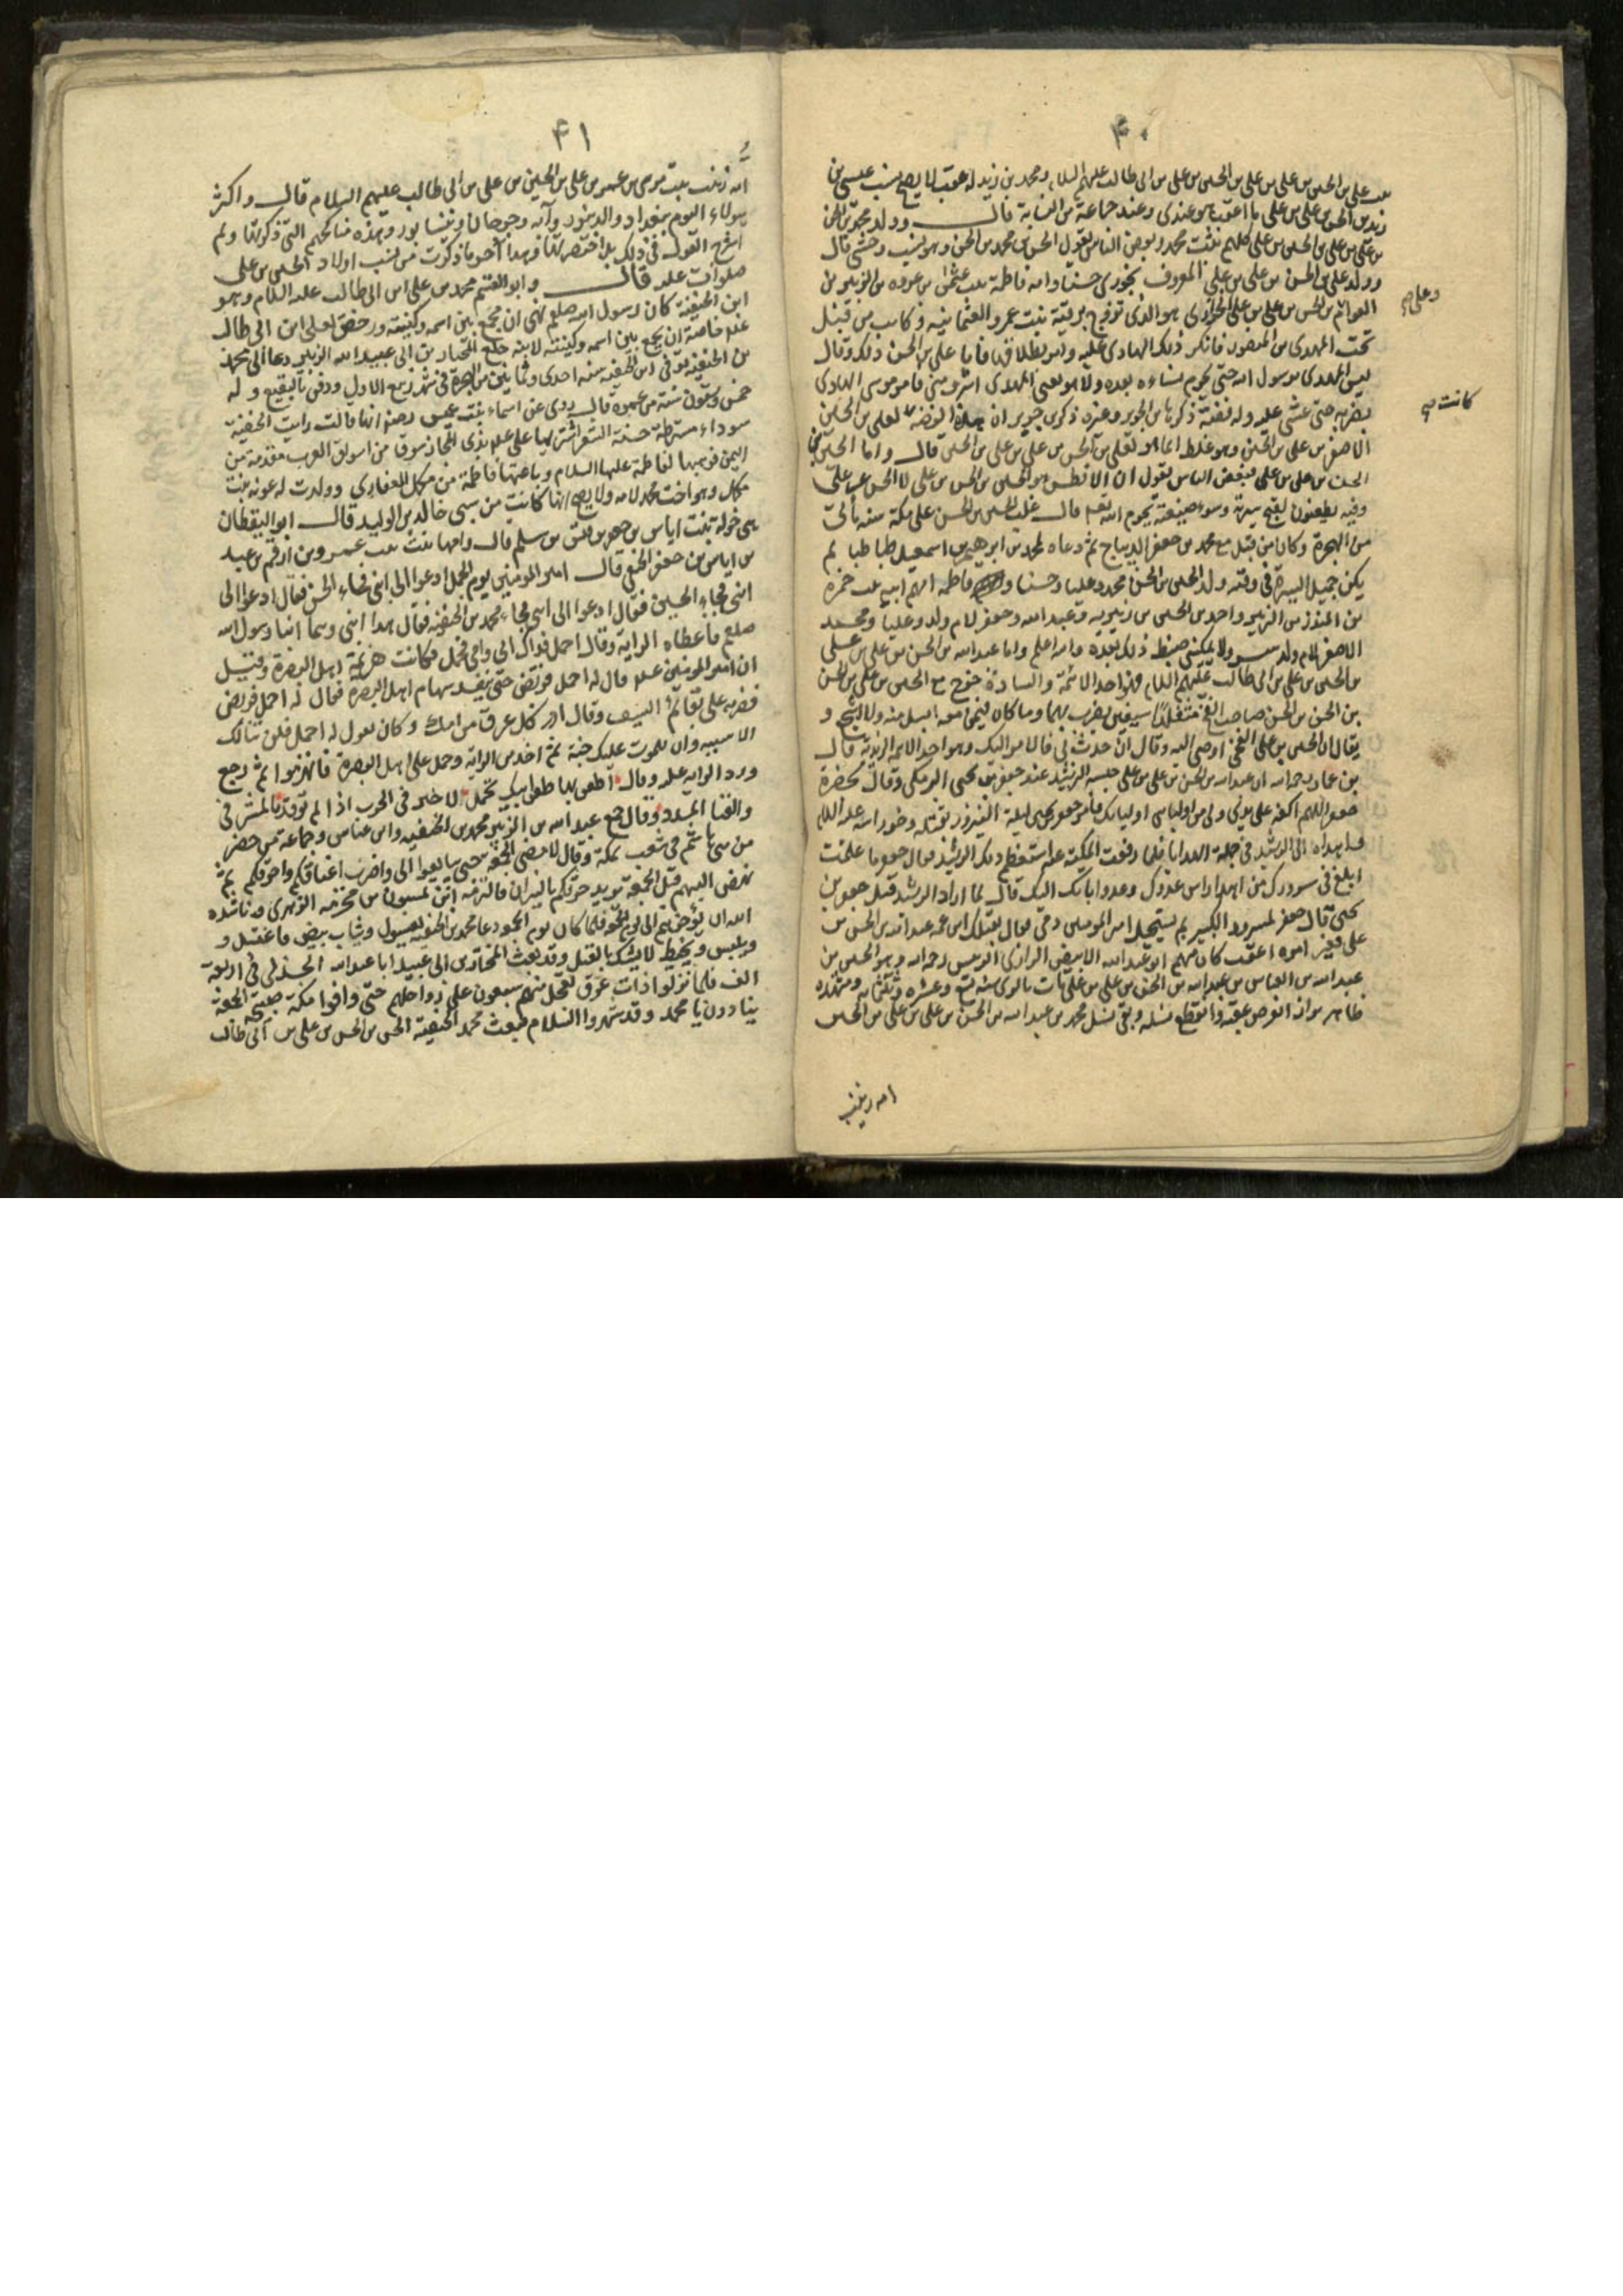 ۴۰
بنت علي بن الحسين بن علي بن علي بن الحسين بن علي بن ابي طالب عليهم السلام ومحمد بن زيد له عقب لا يصح نسب عيسى بن
زيد بن الحسن بن علي بن علي ما اعقب هو عندى وعند جماعة من النسابة قال وولد محمد بن الحسن
بن علي بن علي بن الحسين بن علي كلهم بنت محمد وبعض الناس يقول الحسن بن محمد بن الحسن وهو نسب وحشي قال
وولد علي بن الحسن بن علي بن علي المعروف بخورى حسنا وامه فاطمة بنت عثمن بن عروه بن الزبير بن
العوام بن الحسن بن علي بن علي الخزرى هو الذى تزوج برقية بنت عمرو العثمانية وكانت من قبل
تحت المهدى بن المنصور فانكر ذلك الهادى عليه وامر بطلاقها فأبا علي بن الحسن ذلك وقال
ليس المهدى برسول الله حتى يحرم نساءه بعده ولا هو يعني المهدى اشرف مني فامر موسى الهادى
بضربه حتى غشي عليه وله قصة ذكرها بن الجرير وغيره ذكر بن جرير ان هذه القضية لعلي بن الحسين
الاصغر بن علي بن الحسين وهو غلط انما هو لعلي بن الحسن بن علي بن علي بن الحسين قال واما الحسين بن
الحسن بن علي بن علي فبعض الناس يقول ان الافطس هو الحسين بن الحسن بن علي لا الحسن بن علي
وفيه يطعنون لقبح سيرته وسوء صنيعته بحرم الله تعم قال غلب الحسين بن الحسن على مكة سنة مأتي
من الهجرة وكان من قبل مع محمد بن جعفر الديباج ثم دعاه لمحمد بن ابرهيم بن اسمعيل طباطبا لم
يكن جميل السيرة في وقته ولد الحسين بن الحسن محمدا وعليا وحسنا وفاطمة امهم امية بنت حمزه
بن المنذر بن الزبير واحد بن الحسين من زبيرية وعبد الله وجعفر لام ولد وعليا ومحمد
الاصغر لام ولد ولا يمكنني ضبط ذلك بعده والله اعلم واما عبد الله بن الحسن بن علي بن علي
بن الحسين بن علي بن ابي طالب عليهم السلام فهو احد الائمة والسادة خرج مع الحسين بن علي بن الحسن
بن الحسن بن الحسن صاحب الفخ متقلدا سيفين يضرب بهما وما كان فيمن معه انبل منه ولا اشجع و
يقال ان الحسين بن علي الفخي اوصى اليه وقال ان حدث بي فالامر اليك وهو احد الائمه الزيدية قال
بن عمار رحمه الله ان عبد الله بن الحسن بن علي بن علي حبسه الرشيد عند جعفر بن يحيى البرمكي وقال بحضرة
جعفر اللهم اكفه على يدي ولي من اوليائي اوليائك فأمر جعفر بن يحيى ليلة النيروز بقتله وجز راسه عليه السلم
واهداه الى الرشيد في جملة الهدايا فلما رفعت المكبة عنه استعظم ذلك الرشيد فقال جعفر ما علمت
ابلغ في سرورك من اهداء راس عدوك وعدو ابائك اليك قال لما اراد الرشيد قتل جعفر بن
يحيى قال جعفر لمسرور الكبير بم يستحل امير المومنين دمي فقال بقتلك ابن عمه عبد الله بن الحسن بن
علي بغير امره اعقب كان منهم ابو عبد الله الابيض الرازى الرئيس رحمه الله وهو الحسين بن
عبد الله بن العباس بن عبد الله بن الحسن بن علي بن علي مات بالرى سنة تسع وعشره وثلثمايه ومشهده
ظاهر يزار انقرض عقبه وانقطع نسله وبقى نسل محمد بن عبد الله بن الحسن بن علي بن علي بن الحسين
وعلى
كانت
امه زينب
۴۱
امه زينب بنت موسى بن عمر بن علي بن الحسين بن علي بن ابي طالب عليهم السلام قال واكثر
هولاء اليوم ببغداد والدينور وآبه وجرجان ونيسابور وهذه مناكحهم التي ذكرتها ولم
اشرح القول في ذلك بل اختصرتها وهذا آخر ما ذكرت من نسب اولاد الحسين بن علي
صلوات عليه قال وابو القسم محمد بن علي ابن ابي طالب عليه السلام وهو
ابن الحنفية كان رسول الله صلعم نهى ان يجمع بين اسمه وكنيته ورخص لعلي ابن ابي طالب
علم خاصة ان يجمع بين اسمه وكنيته لابنه خلع المختار بن ابي عبيد الله الزبير ودعا الى محمد
بن الحنفيه توفي ابن الحنفيه سنه احدى وثمانين من الهجرة في شهر ربيع الاول ودفن بالبقيع وله
خمس وستون سنة من عمره قال روى عن اسماء بنت عميس رضعنها انها قالت رايت الحنفية
سوداء مشرطة حسنة الشعر اشتراها علي علم بذى المجاز سوقا من اسواق العرب مقدمه من
اليمن فوهبها لفاطمة عليها السلام وباعتها فاطمة من مكمل الغفاري وولدت له عونه بنت
مكمل وهو اخت محمد لامه ولا يصح انها كانت من سبي خالد بن الوليد قال ابو اليقظان
هي خولة بنت اياس بن جعفر بن قيس بن سلمه قال وامها بنت عمرو بن ارقم بن عبد
بن اياس بن جعفر الحنفي قال امير المومنين يوم الجمل ادعوا الى ابني فجاء الحسن فقال ادعوا لى
ابني فجاء الحسين فقال ادعوا الى ابني فجاء محمد بن الحنفيه فقال هذا ابني وهما ابنا رسول الله
صلعم فاعطاه الراية وقال احمل فداك ابي وامي فحمل فكانت هزيمة اهل البصرة وقيل
ان امير المومنين علم قال له احمل فوقف حتى ينفد سهام اهل البصرة فقال له احمل فوقف
فضربه على بقائم السيف وقال ادركك عرق من امك وكان يقول له احمل فلن تنالك
الاسنة وان للموت عليك جنة ثم اخذ من الراية وحمل على اهل البصرة فانهزموا ثم رجع
ورد الرايه عليه وقال اطعن بها طعن ابيك تحمد لا خير في الحرب اذا لم توقد بالمشرفي
والقنا المسدد وقال جمع عبد الله بن الزبير محمد بن الحنفيه وابن عباس وجماعة من حضر
من بني هاشم في شعب بمكة وقال لا تمضي الجمعة حتى تبايعوا الى واضرب اعناقكم واحرقكم ثم
نهض اليهم قبل الجمعة يريد حرقكم بالنيران فالتزمه ابن لمسور بن مخرمه الزهرى وناشده
الله ان يؤخرهم الى يوم الجمعة فلما كان يوم الجمعة دعا محمد بن الحنفيه بغسول وثياب بيض فاغتسل و
وتلبس وتحنط لا يشك بالقتل وقد بعث المختار بن ابي عبيد ابا عبد الله الجدلي في اربعة
الف فلما نزلوا ذات عرق تعجل منهم سبعون على رواحلهم حتى وافوا مكة صبيحة الجمعة
ينادون يا محمد وقد شهروا السلام فبعث محمد الحنفية الحسن بن الحسن بن علي بن ابي طالب